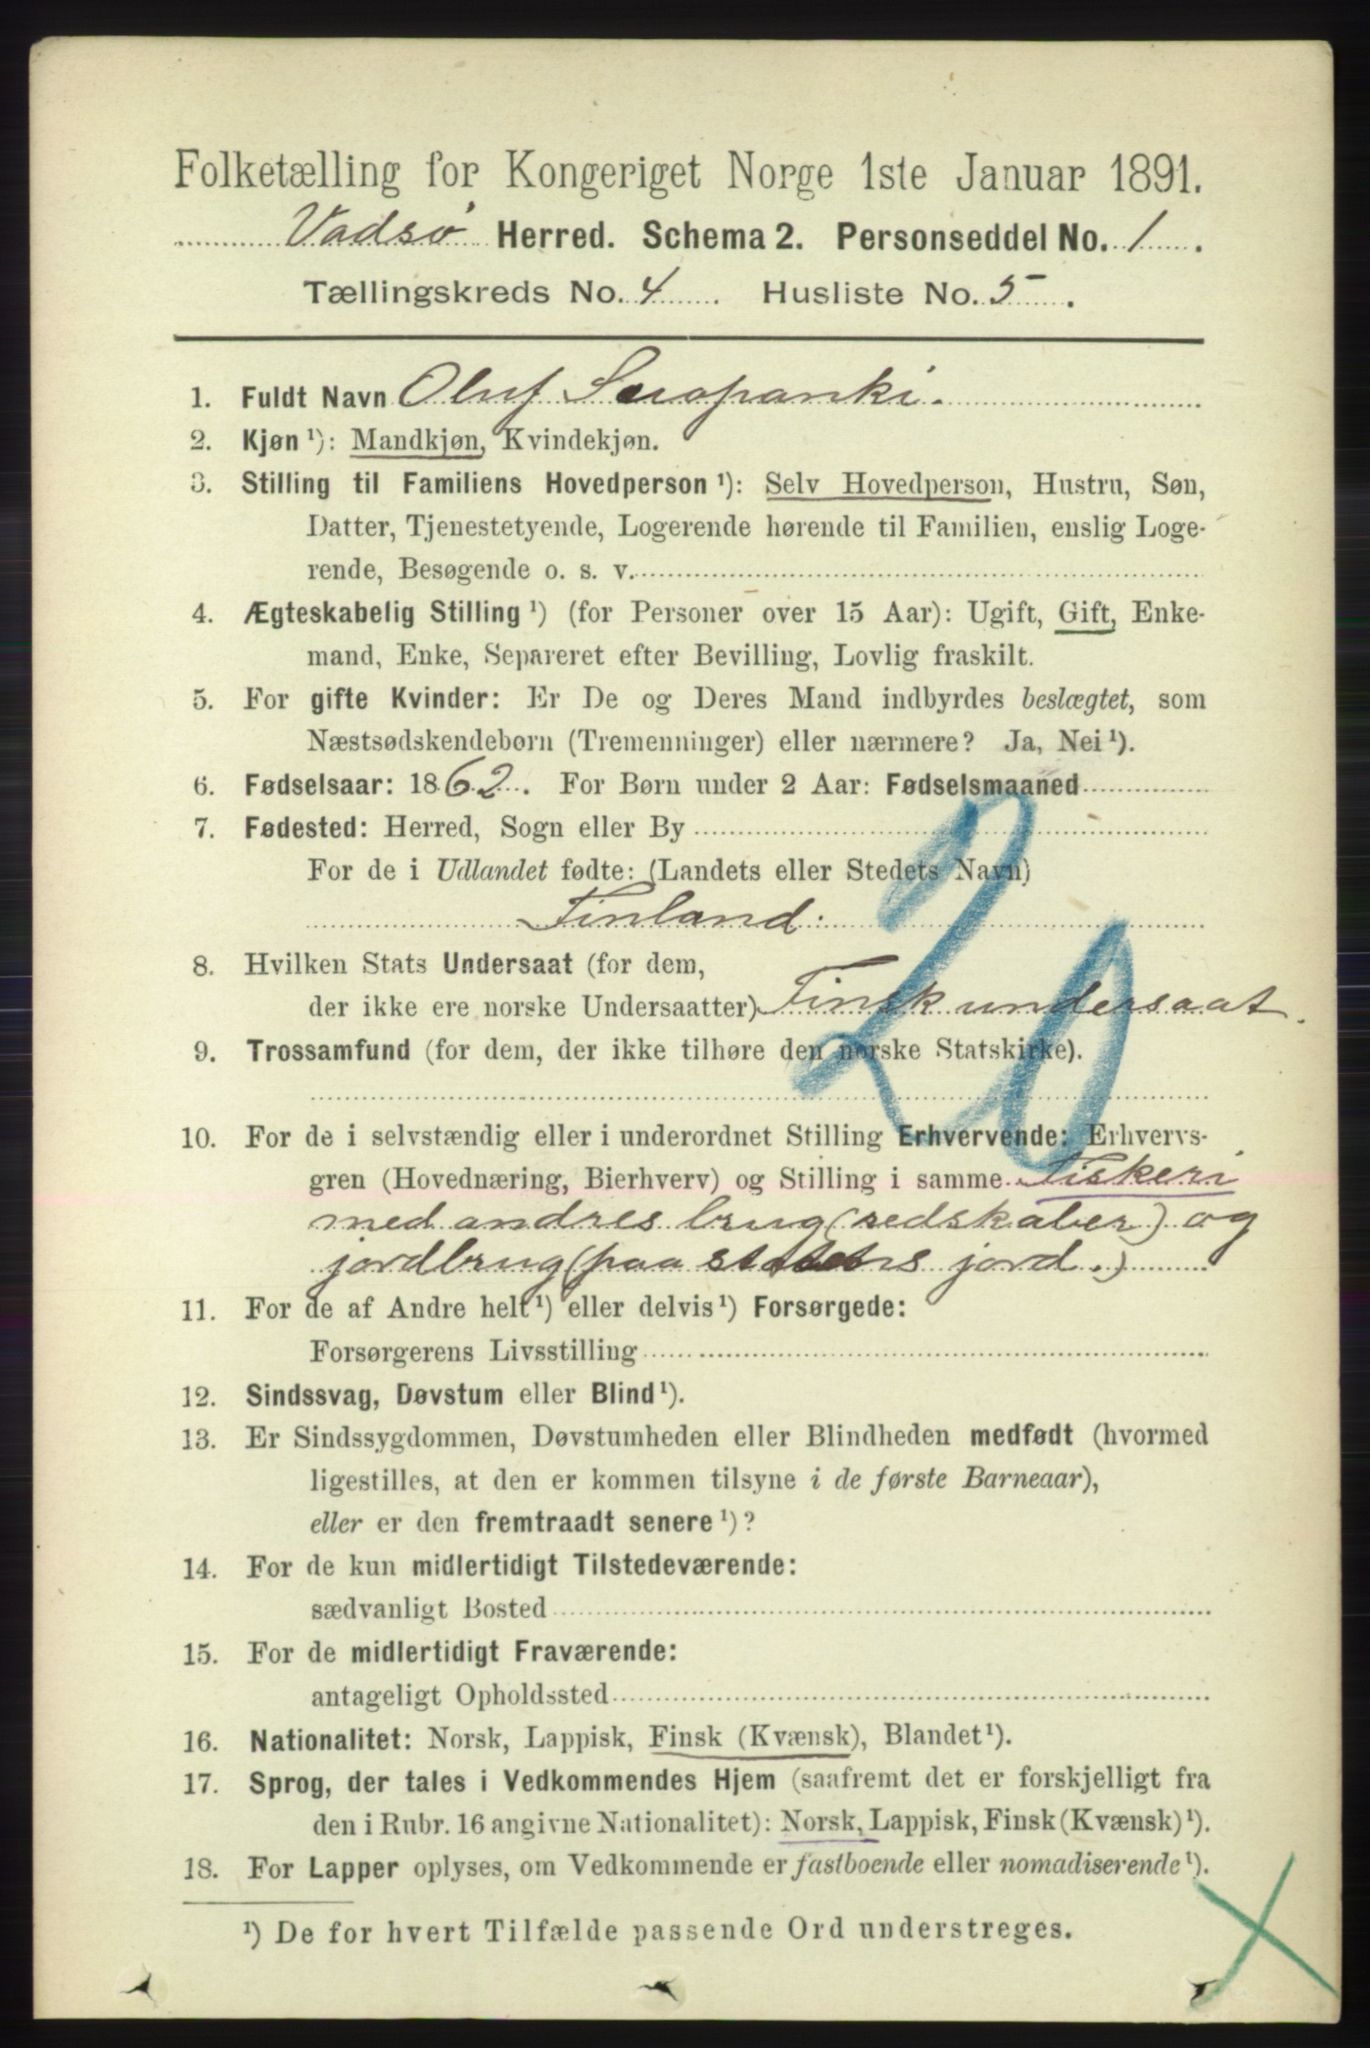 Folketælling for Kongeriget Norge 1ste Januar 1891.
Vadsø Herred. Schema 2. Personseddel No. 1.
Tællingskreds No. 4. Husliste No. 5.
1. Fuldt Navn Oluf
2. Kjøn ¹): Mandkjøn, Kvindekjøn.
3. Stilling til Familiens Hovedperson ¹): Selv Hovedperson, Hustru, Søn,
Datter, Tjenestetyende, Logerende hørende til Familien, enslig Loge-
rende, Besøgende o. s. v.
4. Ægteskabelig Stilling ¹) (for Personer over 15 Aar): Ugift, Gift, Enke-
mand, Enke, Separeret efter Bevilling, Lovlig fraskilt.
5. For gifte Kvinder: Er De og Deres Mand indbyrdes beslægtet, som
Næstsødskendebørn (Tremenninger) eller nærmere? Ja, Nei ¹).
6. Fødselsaar: 1862. For Børn under 2 Aar: Fødselsmaaned
7. Fødested: Herred, Sogn eller By
For de i Udlandet fødte: (Landets eller Stedets Navn)
Finland.
20
8. Hvilken Stats Undersaat (for dem,
der ikke ere norske Undersaatter) Finsk undersaat.
9. Trossamfund (for dem, der ikke tilhøre den norske Statskirke).
10. For de i selvstændig eller i underordnet Stilling Erhvervende: Erhvervs-
gren (Hovednæring, Bierhverv) og Stilling i samme Fiskeri
med andres brug (redskaber) og
jordbrug (paa statens jord.)
11. For de af Andre helt ¹) eller delvis ¹) Forsørgede:
Forsørgerens Livsstilling
12. Sindssvag, Døvstum eller Blind ¹).
13. Er Sindssygdommen, Døvstumheden eller Blindheden medfødt (hvormed
ligestilles, at den er kommen tilsyne i de første Barneaar),
eller er den fremtraadt senere ¹)?
14. For de kun midlertidigt Tilstedeværende:
sædvanligt Bosted
15. For de midlertidigt Fraværende:
antageligt Opholdssted
16. Nationalitet: Norsk, Lappisk, Finsk (Kvænsk), Blandet ¹).
17. Sprog, der tales i Vedkommendes Hjem (saafremt det er forskjelligt fra
den i Rubr. 16 angivne Nationalitet): Norsk, Lappisk, Finsk (Kvænsk) ¹).
18. For Lapper oplyses, om Vedkommende er fastboende eller nomadiserende ¹).
¹) De for hvert Tilfælde passende Ord understreges.